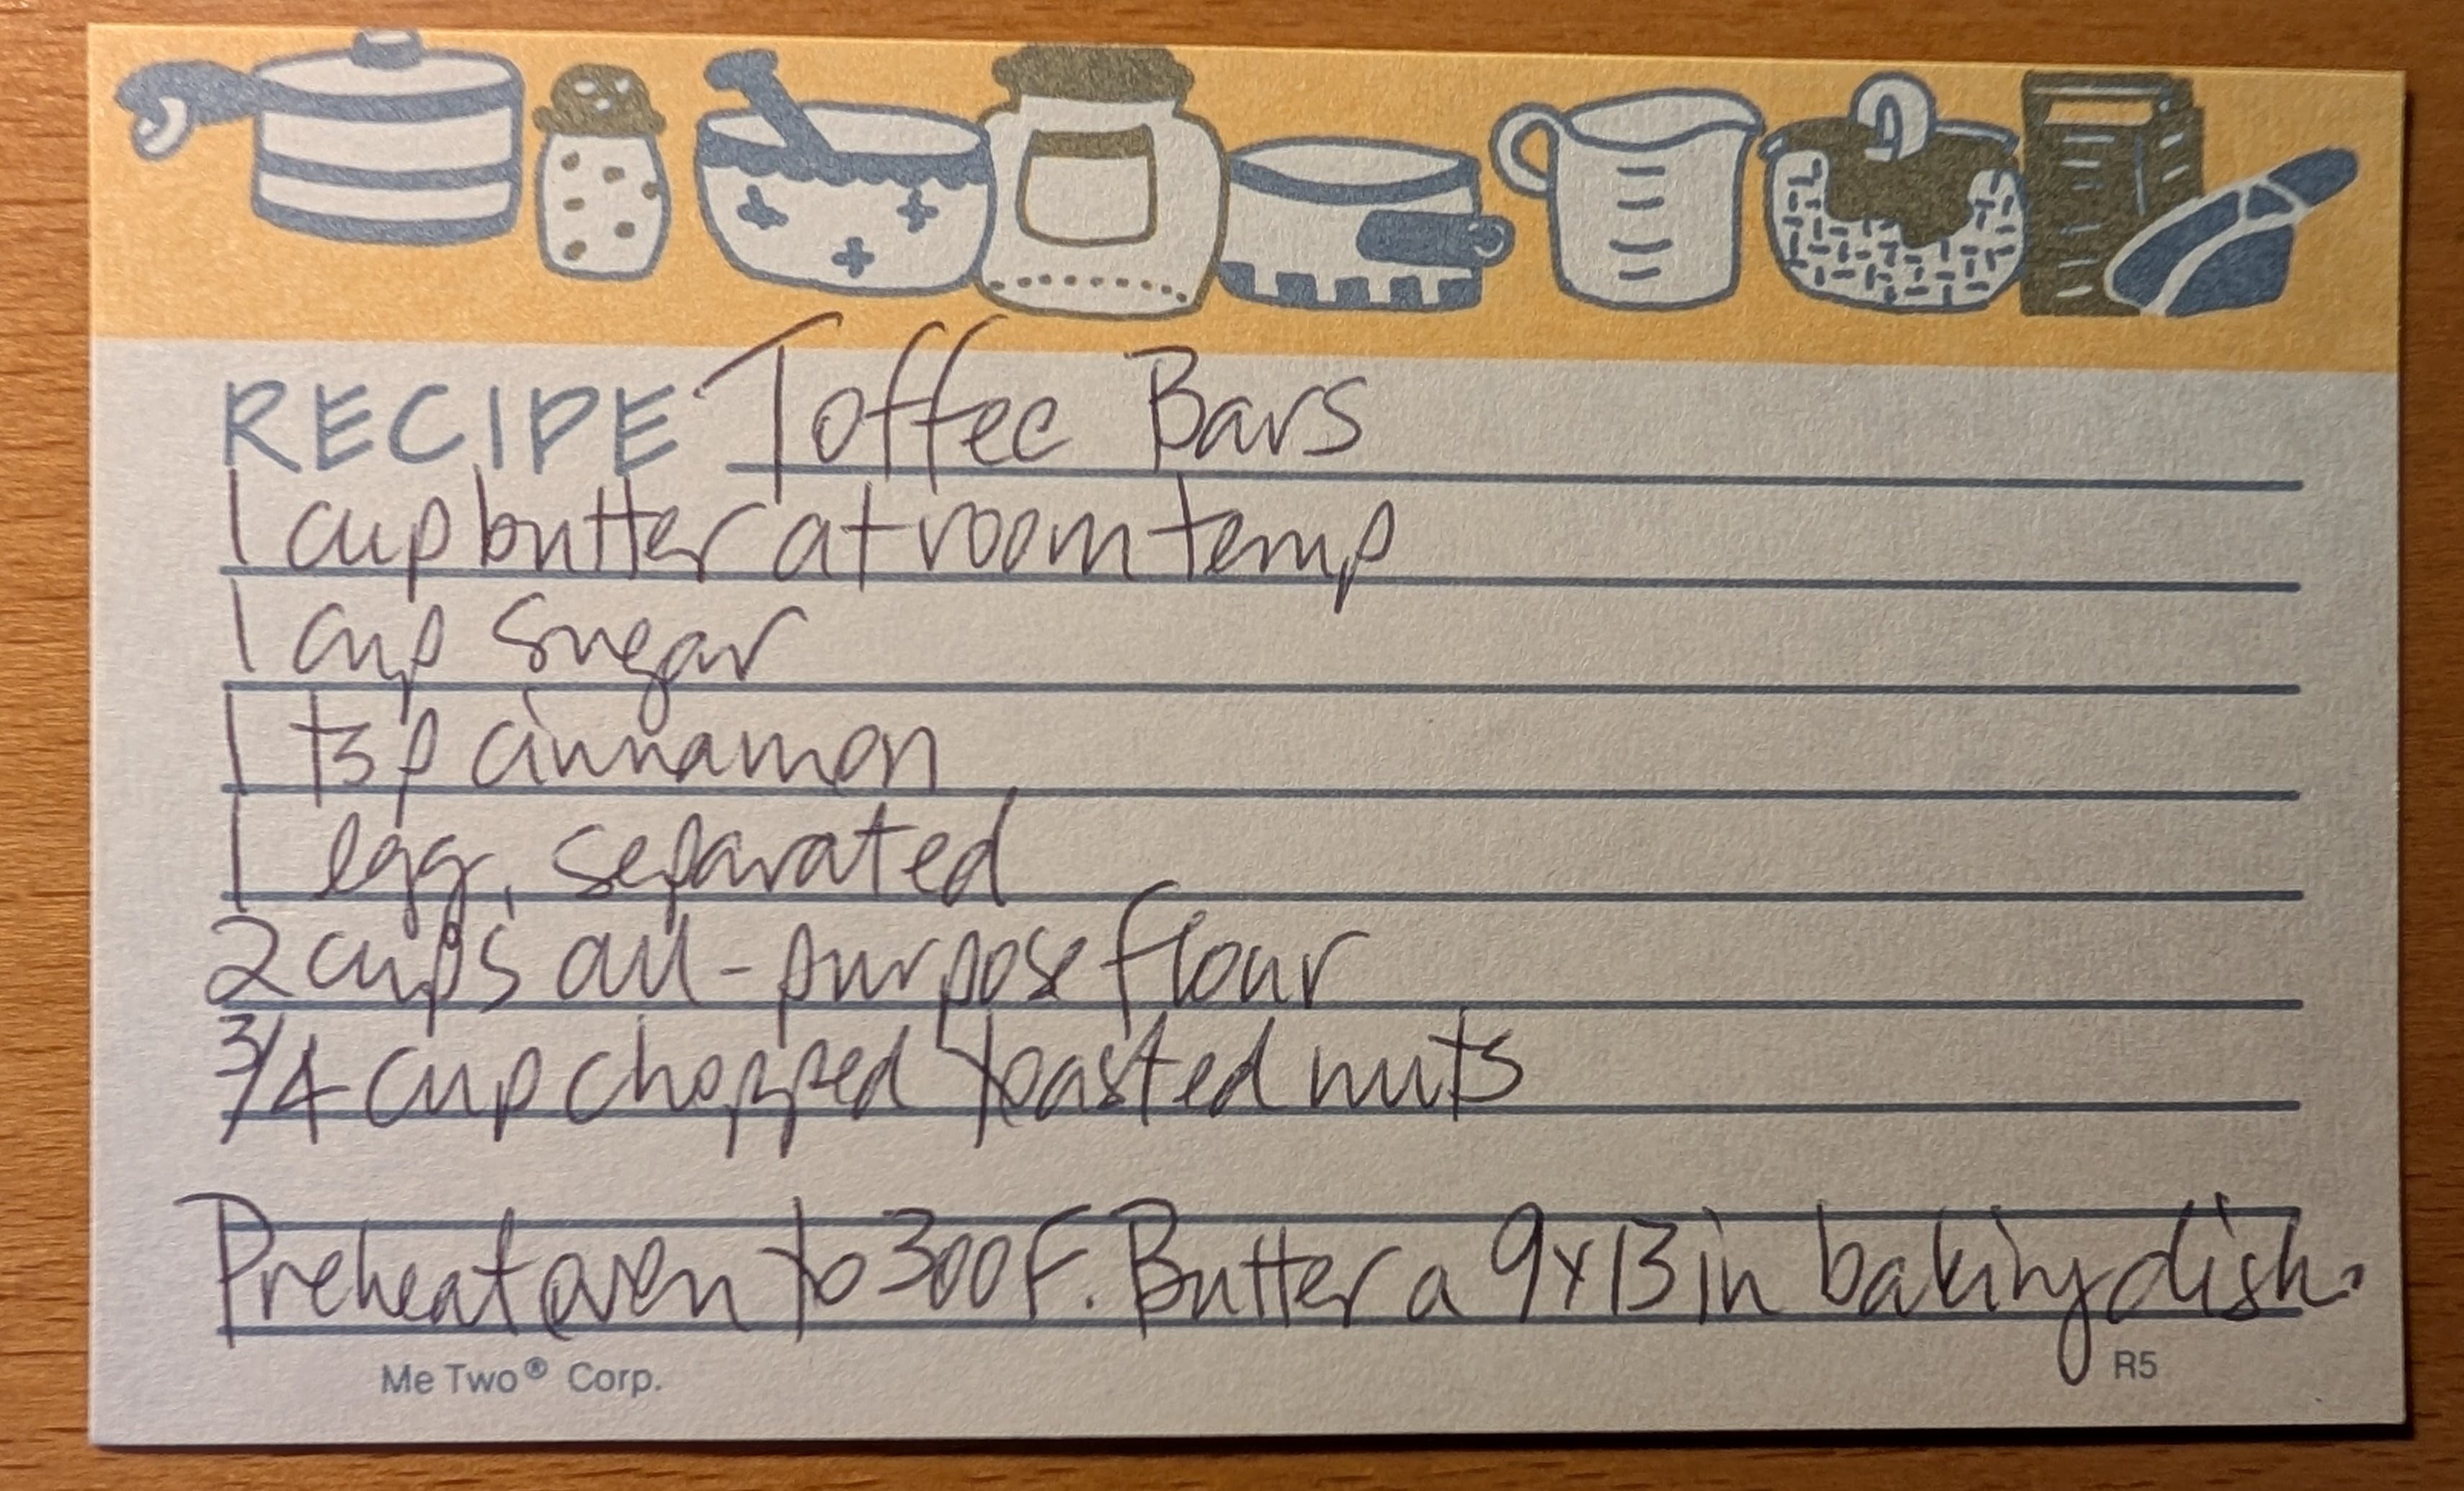 RECIPE Toffee Bars
1 cup butter at room temp
1 cup sugar
1 tsp cinnamon
1 egg, separated
2 cups all-purpose flour
3/4 cup chopped toasted nuts
Preheat oven to 300F. Butter a 9x13 in baking dish.
Me Two® Corp. R5